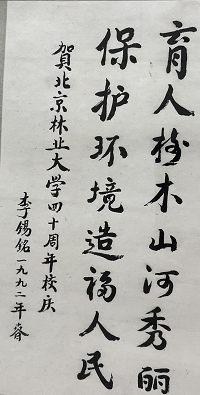 育人树木山河秀丽
保护环境造福人民
贺北京林业大学四十周年校庆
李锡铭一九九二年春